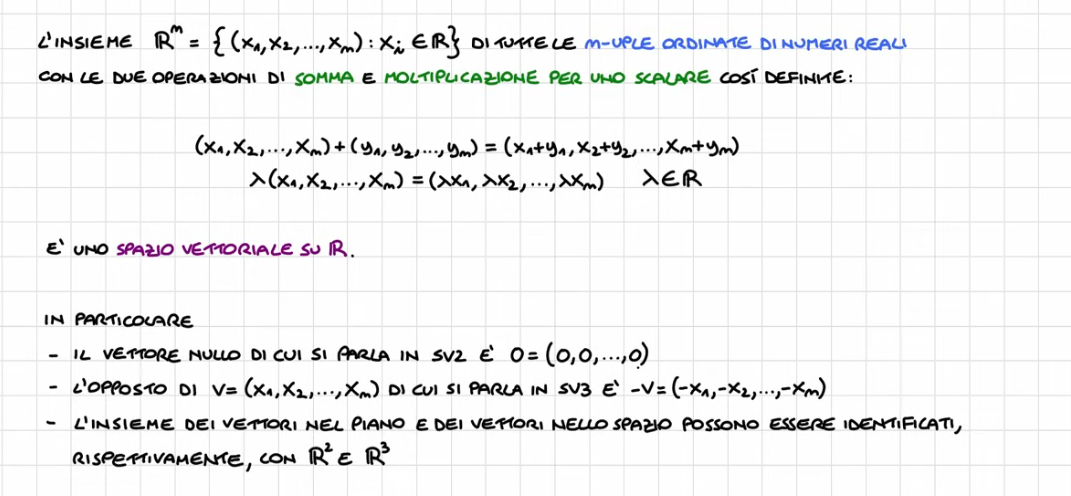 L'INSIEME ℝᵐ = {(x₁,x₂,...,xₘ) : xᵢ ∈ ℝ} DI TUTTE LE m-UPLE ORDINATE DI NUMERI REALI
CON LE DUE OPERAZIONI DI SOMMA E MOLTIPLICAZIONE PER UNO SCALARE COSÍ DEFINITE:
(x₁,x₂,...,xₘ)+(y₁,y₂,...,yₘ) = (x₁+y₁,x₂+y₂,...,xₘ+yₘ)
λ(x₁,x₂,...,xₘ) = (λx₁,λx₂,...,λxₘ) λ∈ℝ
E' UNO SPAZIO VETTORIALE SU ℝ.
IN PARTICOLARE
- IL VETTORE NULLO DI CUI SI PARLA IN SV2 E' 0=(0,0,...,0)
- L'OPPOSTO DI V=(x₁,x₂,...,xₘ) DI CUI SI PARLA IN SV3 E' -V=(-x₁,-x₂,...,-xₘ)
- L'INSIEME DEI VETTORI NEL PIANO E DEI VETTORI NELLO SPAZIO POSSONO ESSERE IDENTIFICATI,
RISPETTIVAMENTE, CON ℝ² E ℝ³